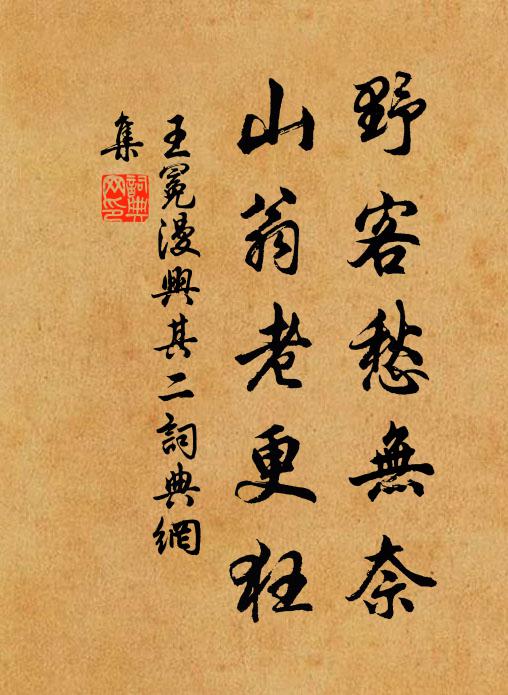 野客愁無奈
山翁老更狂
王冕漫興其二詞典網
集
詞典
网印